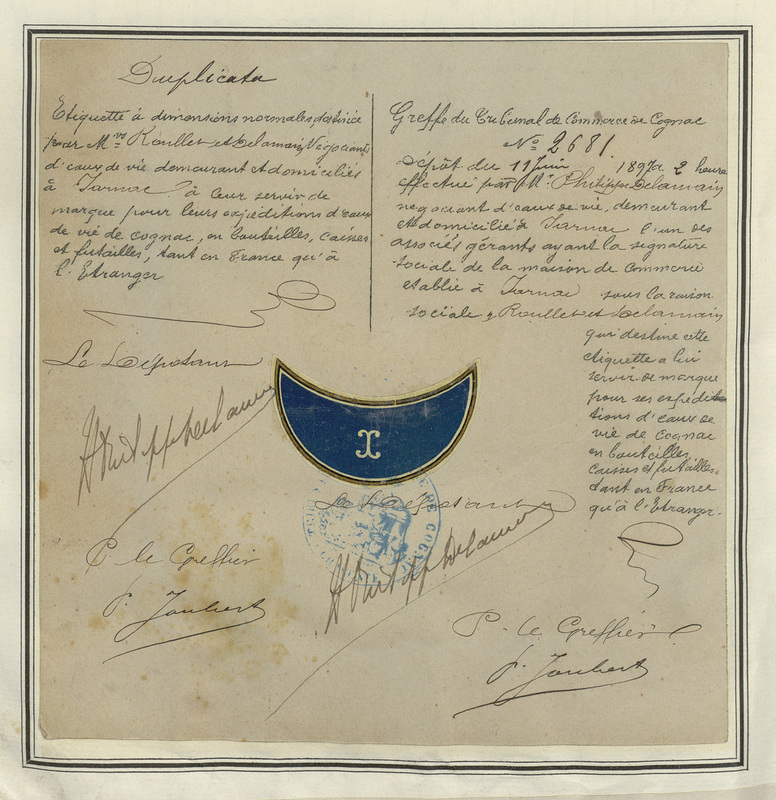 Duplicata
Etiquette à dimensions normales destinée
par Mrs Roullet et Delamain, Négociants
d'eaux de vie demeurant et domiciliés
à Jarnac à leur servir de
marque pour leurs expéditions d'eaux
de vie de cognac, en bouteilles, caisses
et futailles, tant en France qu'à
l'Etranger
Le Déposant
Ph Delamain
P. le Greffier
P. Joubert
Greffe du Tribunal de Commerce de Cognac
No 2681
Dépôt du 11 Juin 1897 à 2 heures
effectué par Mr Philippe Delamain
négociant d'eaux de vie, demeurant
et domicilié à Jarnac l'un des
associés gérants ayant la signature
sociale de la maison de commerce
établie à Jarnac sous la raison
sociale, Roullet et Delamain
qui destine cette
étiquette à lui
servir de marque
pour ses expédi-
tions d'eaux de
vie de Cognac
en bouteilles,
caisses et futailles,
tant en France
qu'à l'Etranger.
Le Déposant
Ph Delamain
P. le Greffier
P. Joubert